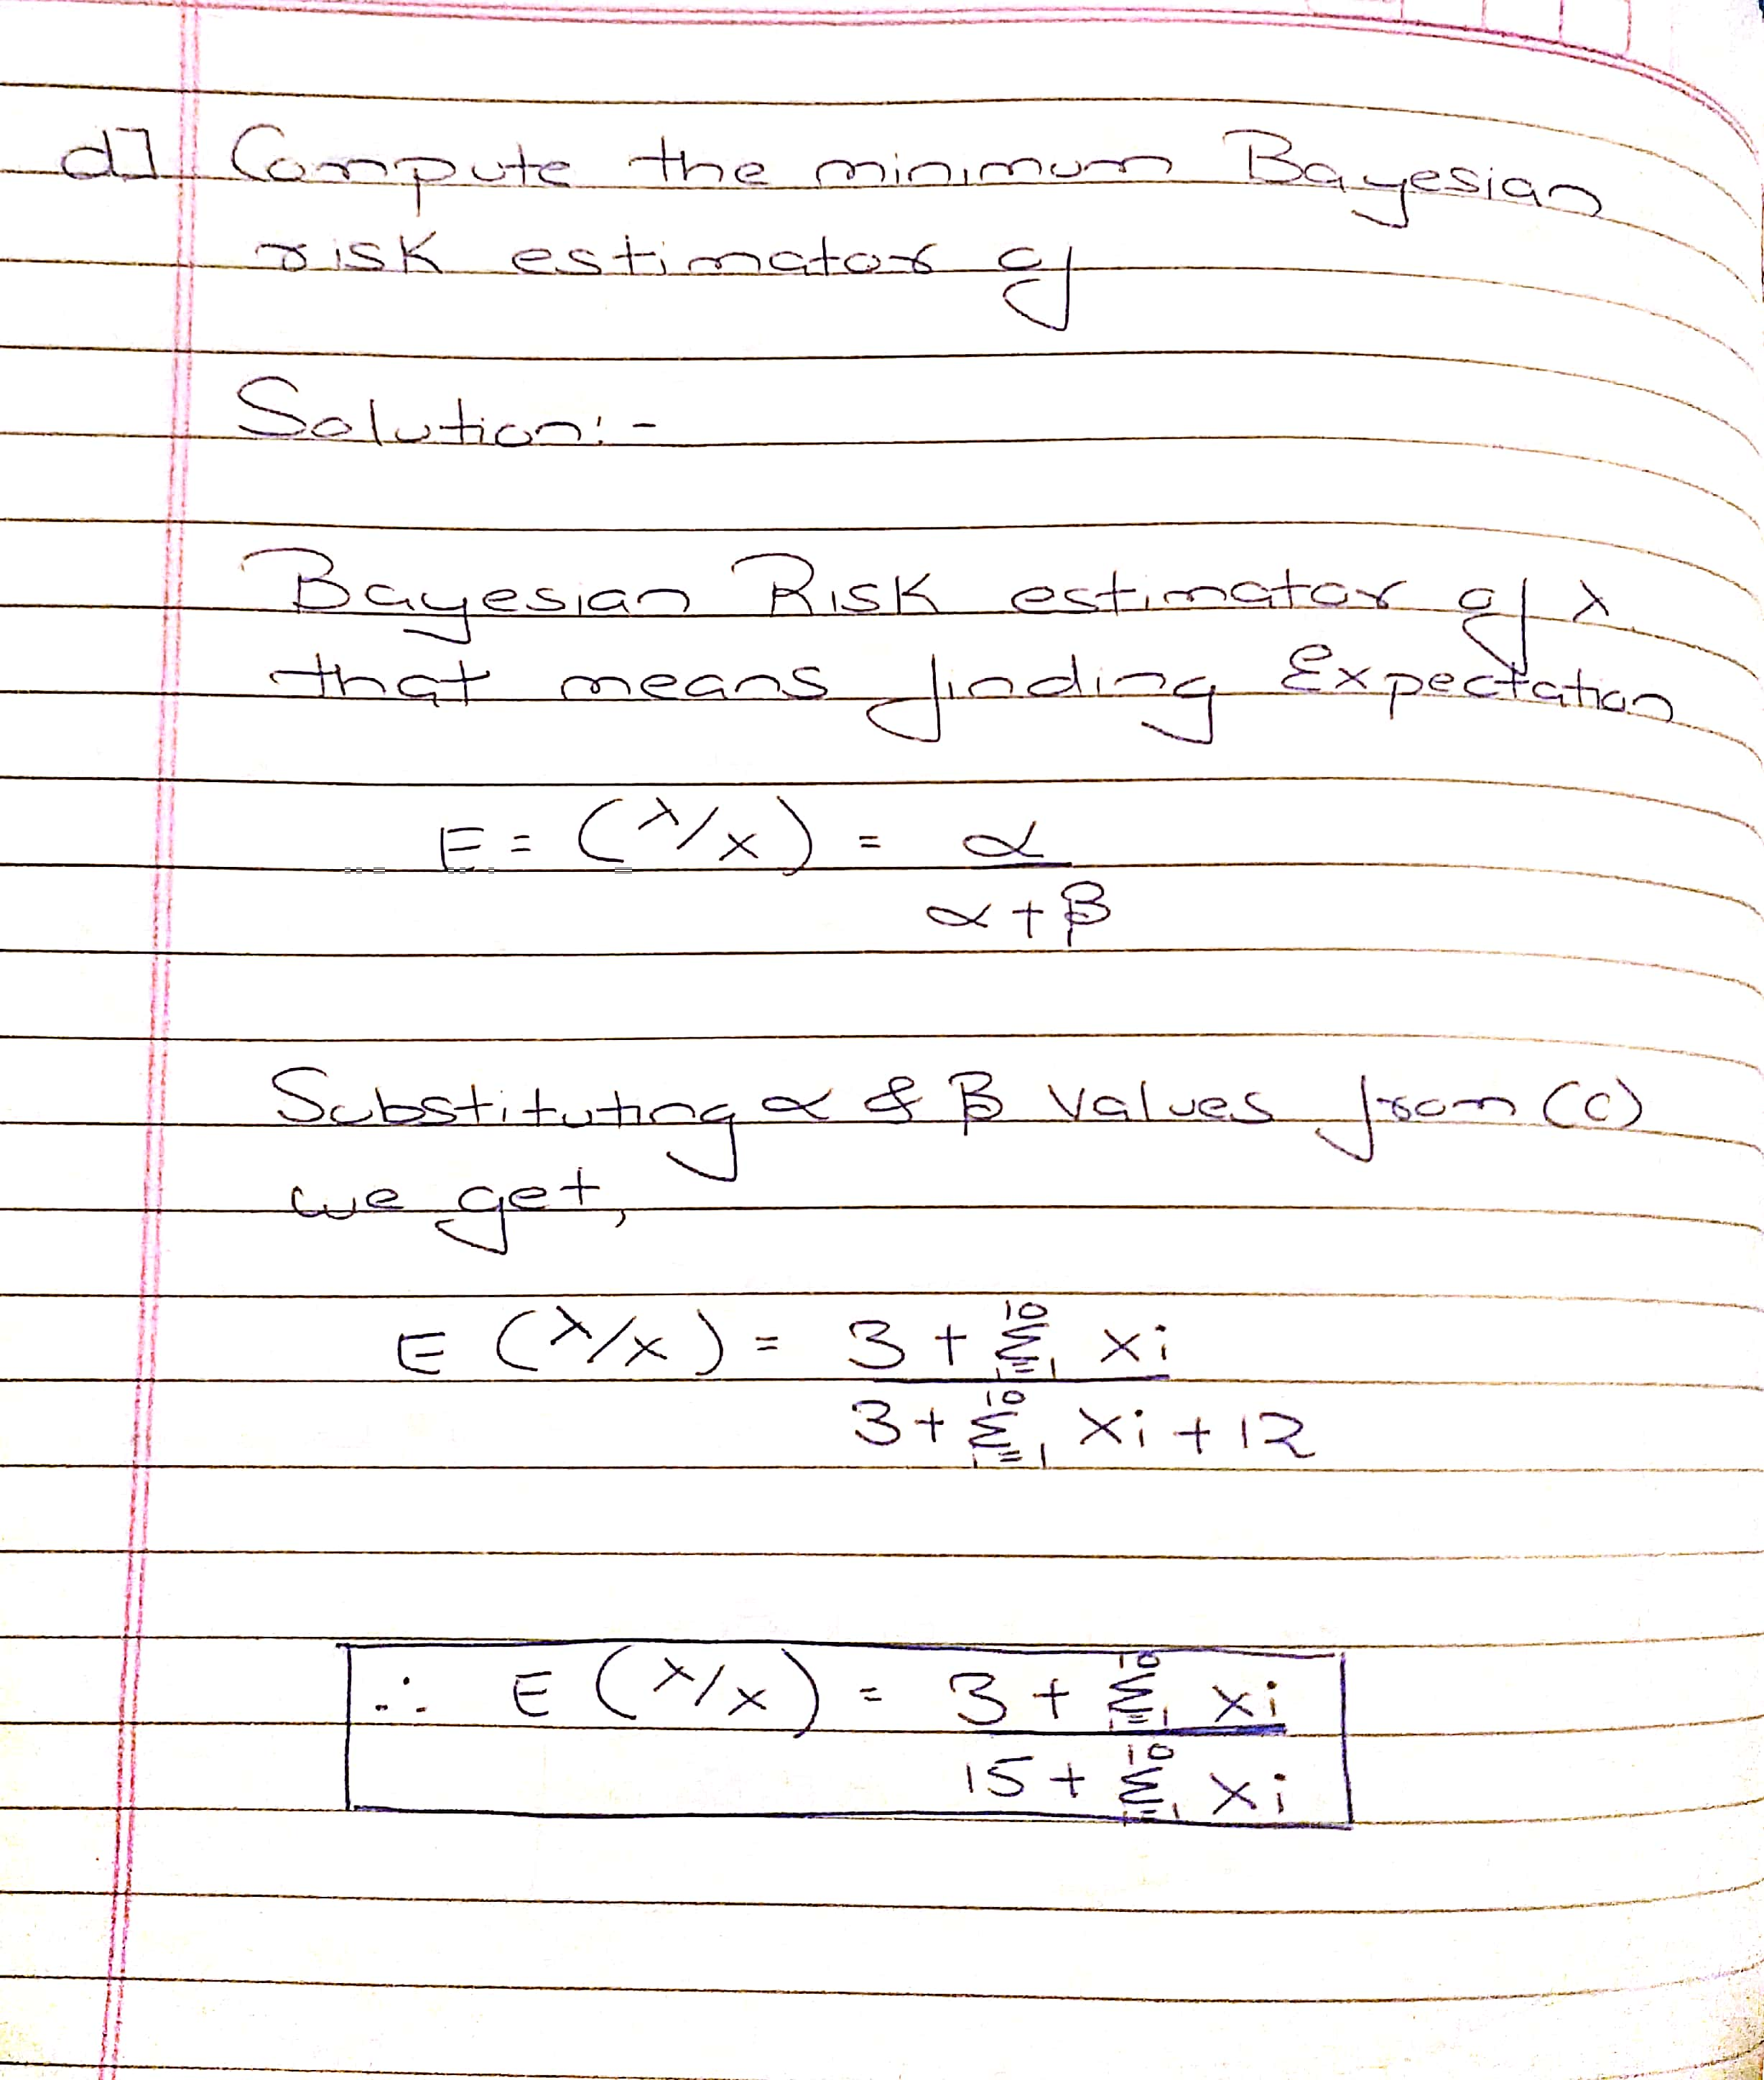 d] Compute the minimum Bayesian
risk estimator of
Solution:-
Bayesian Risk estimator of λ
that means finding Expectation
E = (λ/x) = α
α + β
Substituting α & β values from (c)
we get,
E (λ/x) = 3 + 10 Σ i=1 xi
3 + 10 Σ i=1 xi + 12
∴ E (λ/x) = 3 + 10 Σ i=1 xi
15 + 10 Σ i=1 xi